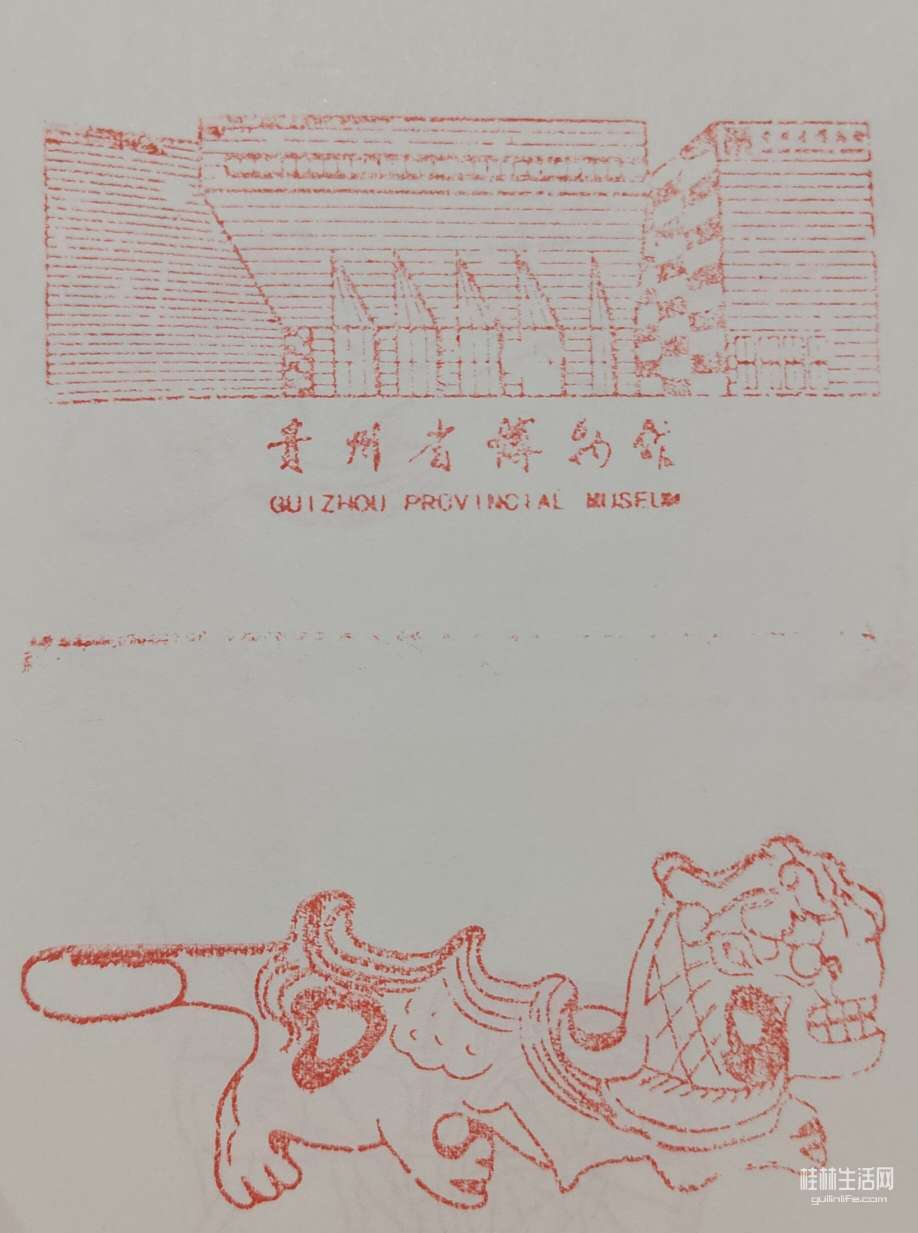 贵州省博物馆
GUIZHOU PROVINCIAL MUSEUM
桂林生活网
guilinlife.com